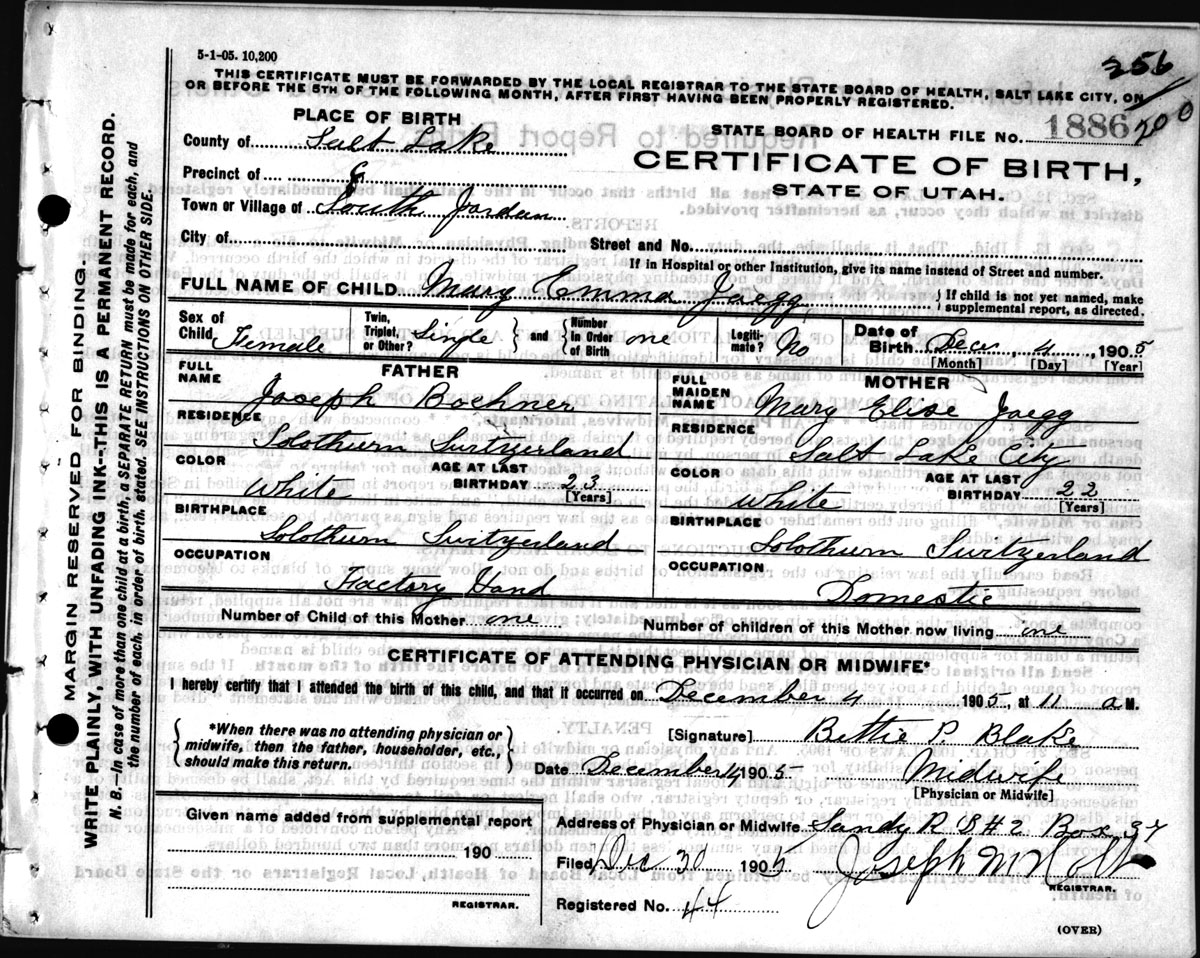 5-1-05. 10,200
256
THIS CERTIFICATE MUST BE FORWARDED BY THE LOCAL REGISTRAR TO THE STATE BOARD OF HEALTH, SALT LAKE CITY, ON
OR BEFORE THE 5TH OF THE FOLLOWING MONTH, AFTER FIRST HAVING BEEN PROPERLY REGISTERED.
PLACE OF BIRTH
County of Salt Lake
STATE BOARD OF HEALTH FILE No. 1886 200
CERTIFICATE OF BIRTH,
STATE OF UTAH.
Precinct of
Town or Village of South Jordan
City of Street and No.
If in Hospital or other Institution, give its name instead of Street and number.
FULL NAME OF CHILD Mary Emma Jaegg } If child is not yet named, make supplemental report, as directed.
Sex of Child Female Twin, Triplet, or Other? Single } and { Number in Order of Birth one Legiti-mate? No Date of Birth Decr 4, 1905
[Month] [Day] [Year]
FATHER
FULL NAME Joseph Bochner
RESIDENCE Solothurn Suritzerland
COLOR White AGE AT LAST BIRTHDAY 23 [Years]
BIRTHPLACE Solothurn Suritzerland
OCCUPATION Factory Hand
MOTHER
FULL MAIDEN NAME Mary Elise Jaegg
RESIDENCE Salt Lake City
COLOR White AGE AT LAST BIRTHDAY 22 [Years]
BIRTHPLACE Solothurn Suritzerland
OCCUPATION Domestic
Number of Child of this Mother one Number of children of this Mother now living one
CERTIFICATE OF ATTENDING PHYSICIAN OR MIDWIFE*
I hereby certify that I attended the birth of this child, and that it occurred on December 4 1905, at 11 a M.
{ *When there was no attending physician or midwife, then the father, householder, etc., should make this return. }
[Signature] Bettie P Blake
Date December 4 1905 Midwife
[Physician or Midwife]
Given name added from supplemental report
190
REGISTRAR.
Address of Physician or Midwife Sandy R S # 2 Box 37
Filed Dec 30 1905 Joseph M Holt
REGISTRAR.
Registered No. 44
(OVER)
MARGIN RESERVED FOR BINDING.
WRITE PLAINLY, WITH UNFADING INK--THIS IS A PERMANENT RECORD.
N. B.—In case of more than one child at a birth, a SEPARATE RETURN must be made for each, and
the number of each, in order of birth, stated. SEE INSTRUCTIONS ON OTHER SIDE.